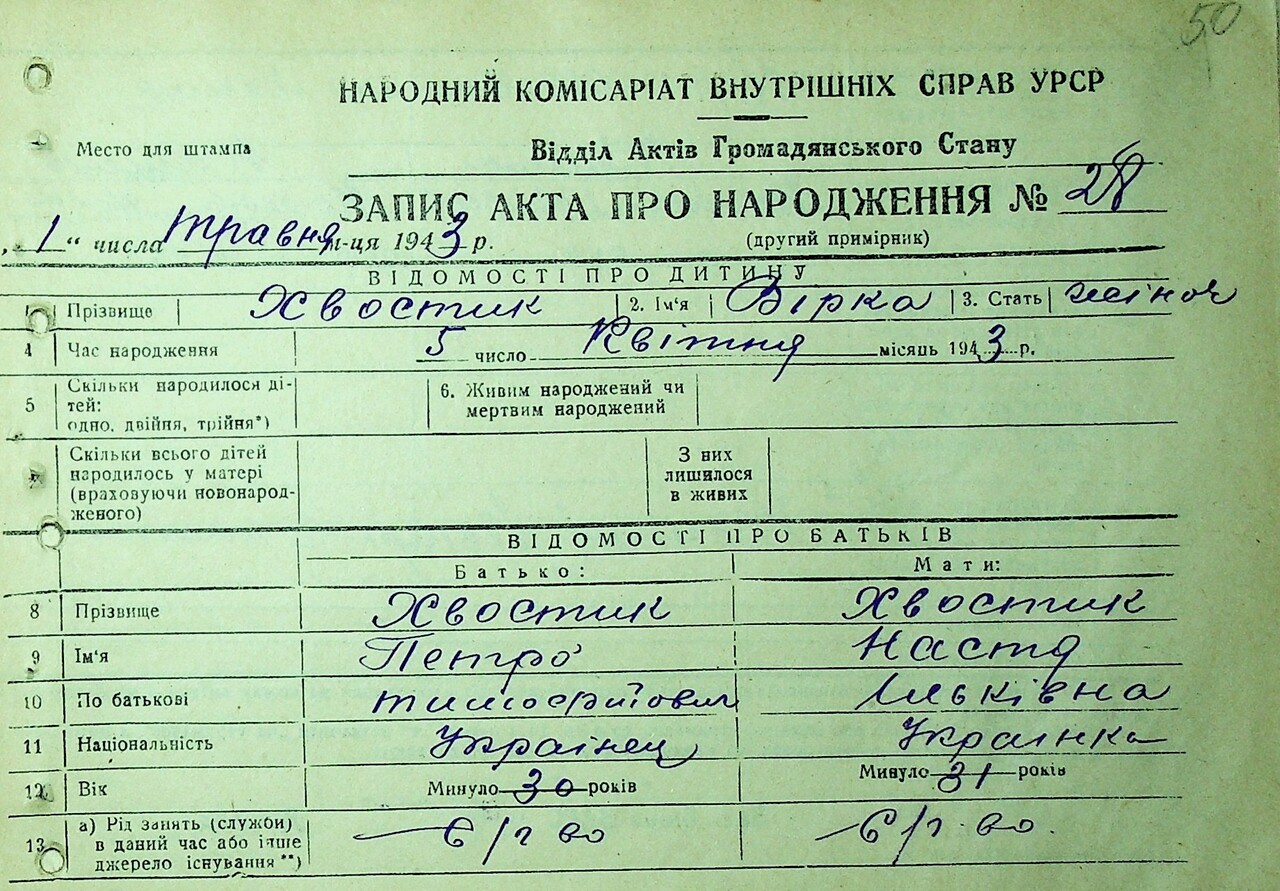 50
НАРОДНИЙ КОМІСАРІАТ ВНУТРІШНІХ СПРАВ УРСР
Место для штампа
Відділ Актів Громадянського Стану
ЗАПИС АКТА ПРО НАРОДЖЕННЯ № 28
„ 1 “ числа травня м-ця 1943 р.
(другий примірник)
ВІДОМОСТІ ПРО ДИТИНУ
Прізвище Хвостик 2. Ім'я Вірка 3. Стать жіноч
4 Час народження 5 число Квітня місяць 1943 р.
5 Скільки народилося ді-
тей:
одно, двійня, трійня*)
6. Живим народжений чи
мертвим народжений
7 Скільки всього дітей
народилось у матері
(враховуючи новонарод-
женого)
З них
лишилося
в живих
ВІДОМОСТІ ПРО БАТЬКІВ
Батько: Мати:
8 Прізвище Хвостик Хвостик
9 Ім'я Петро Настя
10 По батькові Ільківна
11 Національність Украінец Украінка
12 Вік Минуло 30 років Минуло 31 років
13 а) Рід занять (служби)
в даний час або інше
джерело існування **)